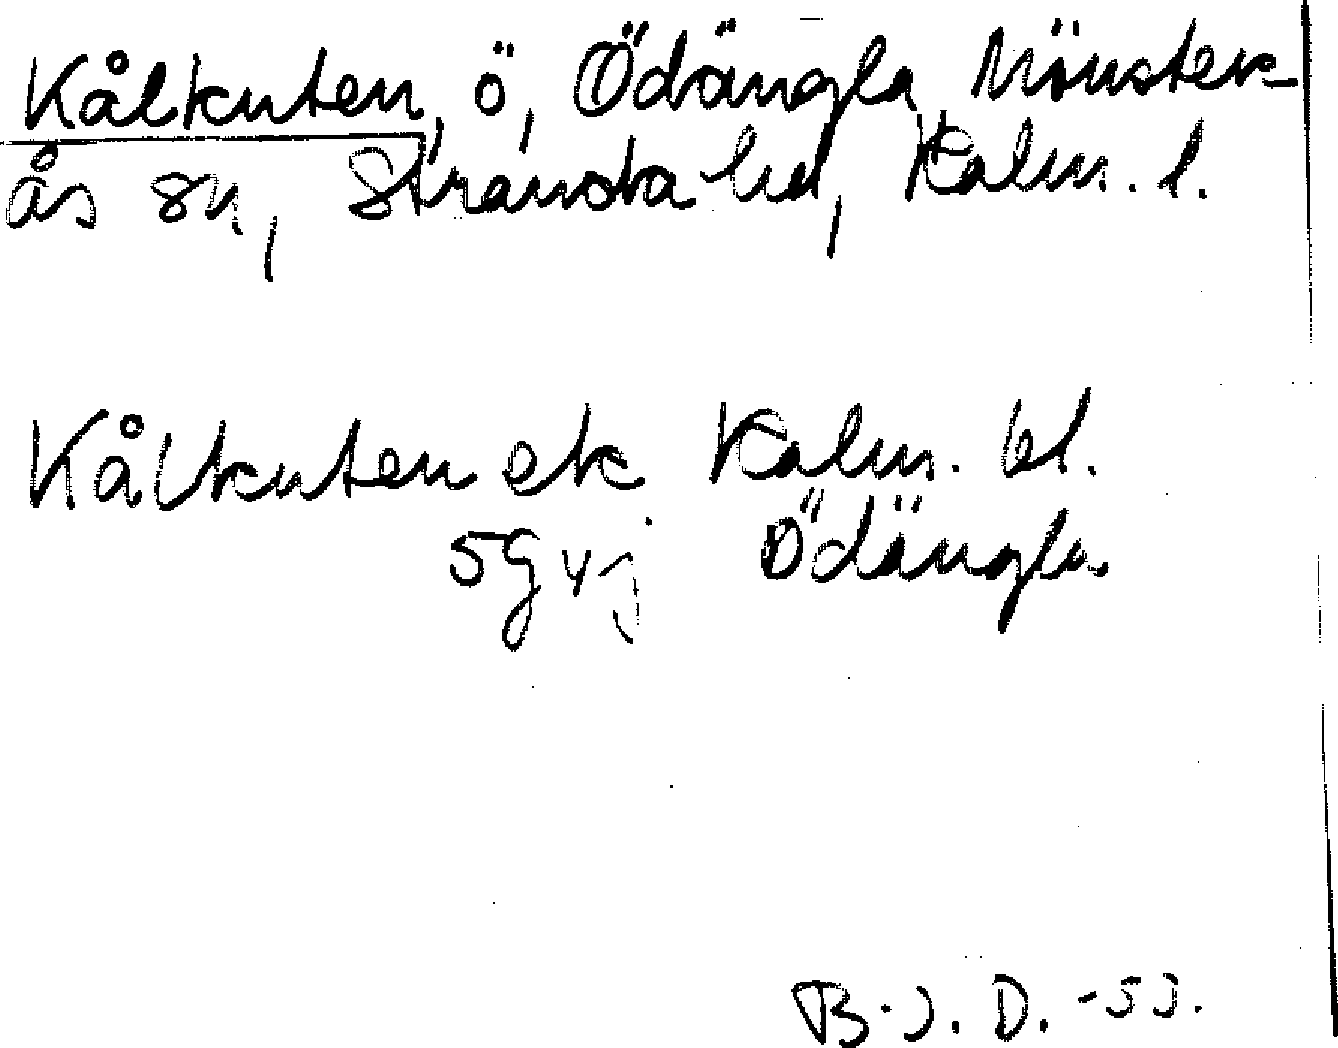 Kålkuten, ö, Ödängla, Mönster-
ås sn, Stranda hd, Kalm. l.
Kålkuten ek Kalm. bl.
5g vj Ödängla
B. J. D. -53.